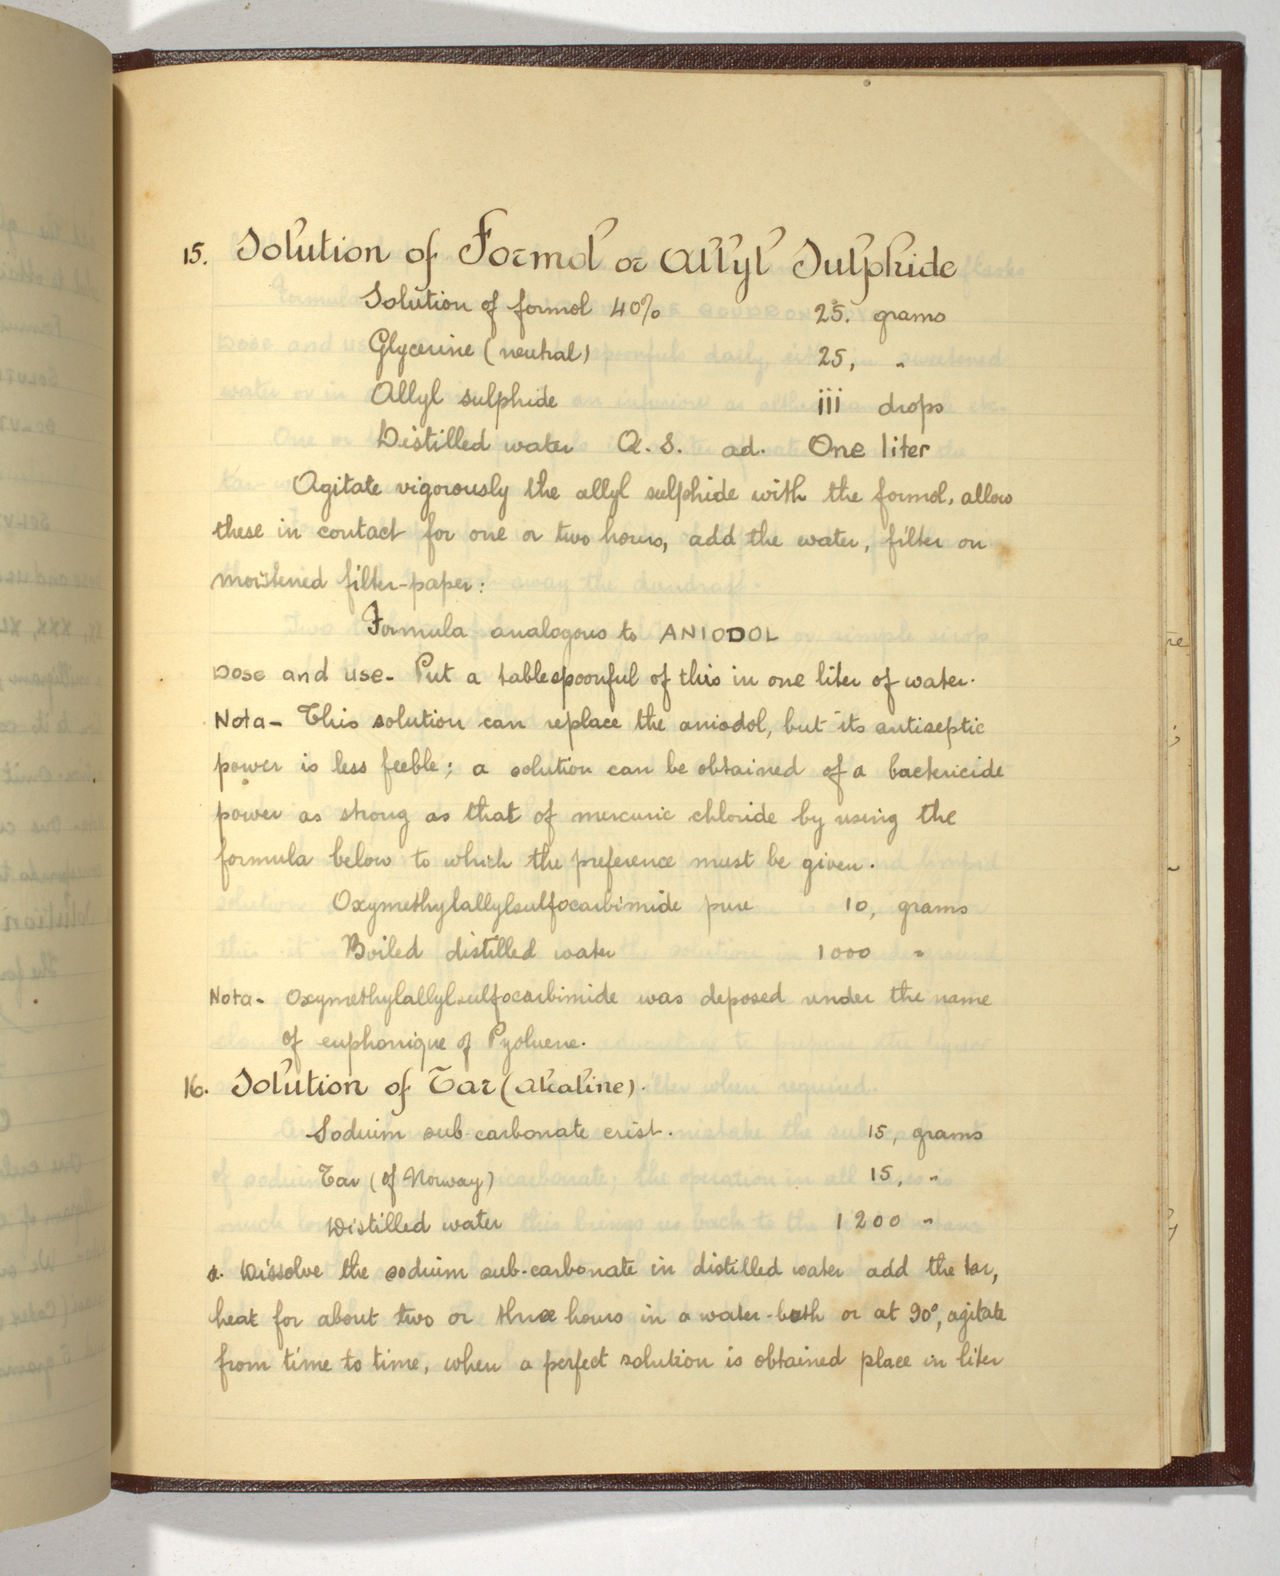 15. Solution of Formol or Allyl Sulphide
Solution of formol 40% 25. grams
Glycerine (neutral) 25, "
Allyl sulphide iii drops
Distilled water Q. S. ad. One liter
Agitate vigorously the allyl sulphide with the formol, allow
these in contact for one or two hours, add the water, filter on
moistened filter-paper:
Formula analogous to ANIODOL
Dose and use- Put a tablespoonful of this in one liter of water.
Nota- This solution can replace the aniodol, but its antiseptic
power is less feeble; a solution can be obtained of a bactericide
power as strong as that of mercuric chloride by using the
formula below to which the preference must be given.
Oxymethylallylsulfocarbimide pure 10, grams
Boiled distilled water 1000 "
Nota- Oxymethylallylsulfocarbimide was deposed under the name
of euphonique of Pyoluene.
16. Solution of Tar (alkaline).
Soduim sub-carbonate crist. 15, grams
Tar (of Norway) 15, "
Distilled water 1200 "
a. Dissolve the soduim sub-carbonate in distilled water add the tar,
heat for about two or three hours in a water-bath or at 90°, agitate
from time to time, when a perfect solution is obtained place in liter